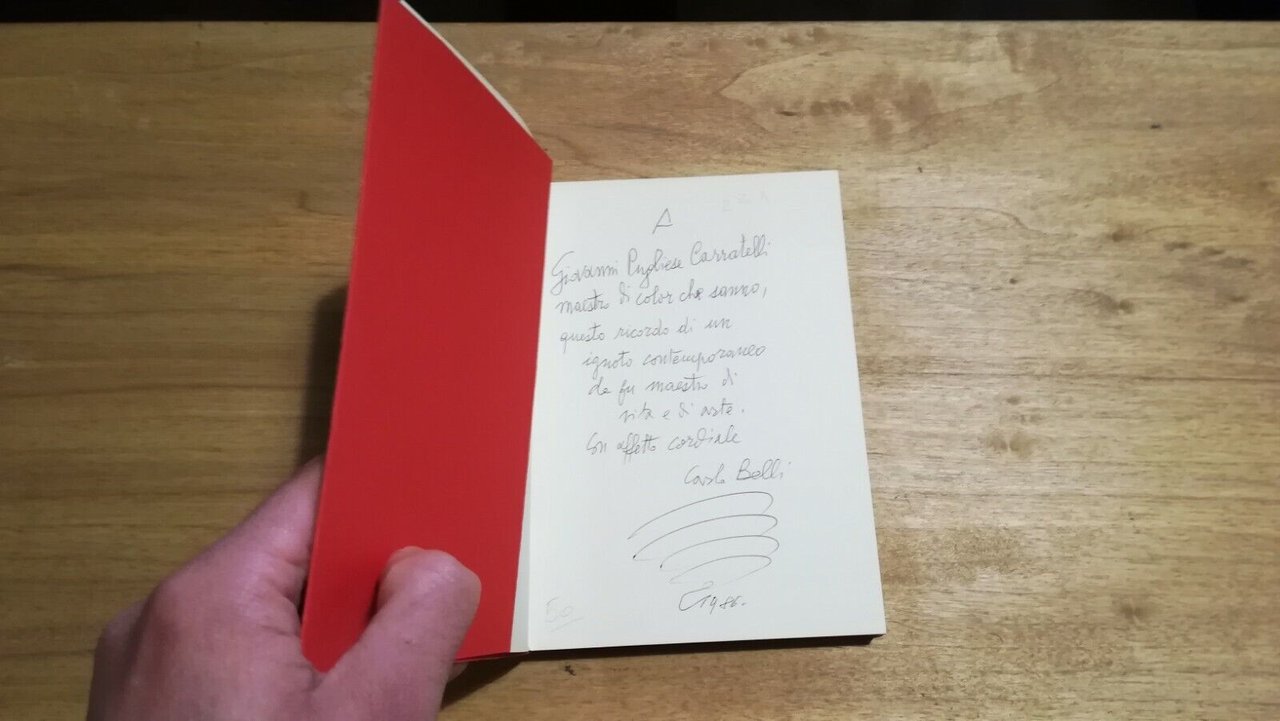 A
Giovanni Pugliese Carratelli
maestro di color che sanno,
questo ricordo di un
ignoto contemporaneo
de fu maestro di
vita e di arte.
Con affetto cordiale
Carlo Belli
1986.
50